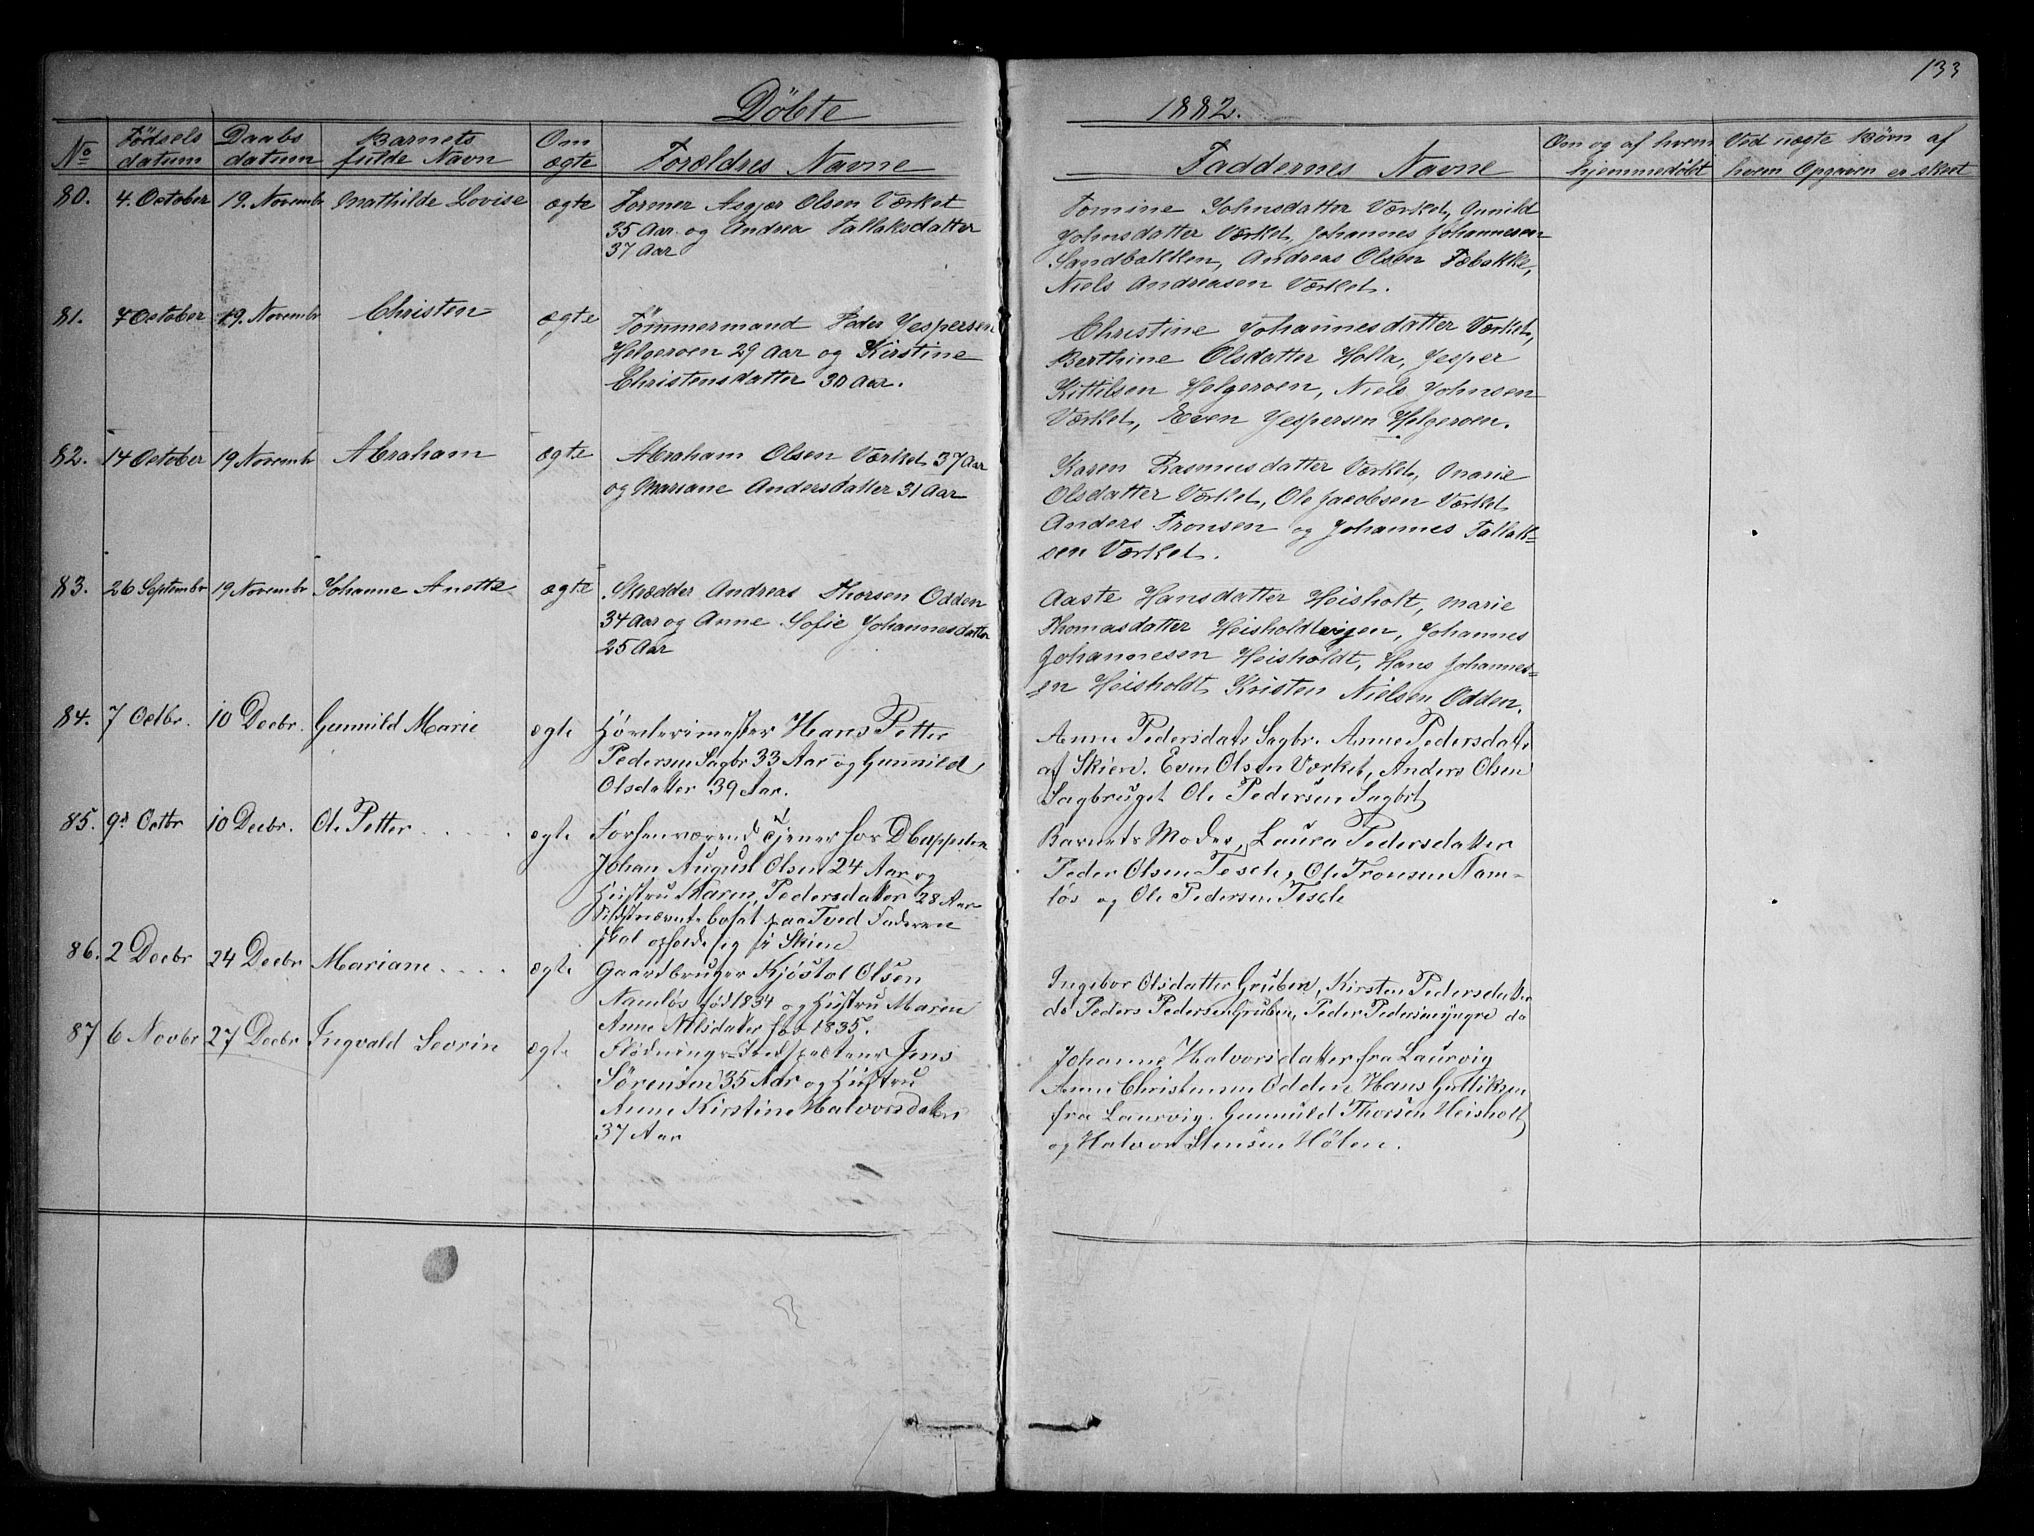 133
Döbte 1882.
No Födsels datum Daabs datum Barnets fulde Navn Om ægte Forældres Navne Faddernes Navne Om og af hvem hjemmedøbt Ved uægte Børn af hvem Opgaven er skeet
80. 4. October 19. Novembr Mathilde Lovise ægte Former Asgjer Olsen Værket
35 Aar og Andrea Tallaksdatter
37 Aar
Tomine Johnsdatter Værket, Gunild
Johnsdatter Værket, Johannes Johannesen
Sandbakken, Andreas Olsen Fæbakke,
Niels Andreasen Værket.
81. 7 October 19. Novembr Christen ægte Tømmermand Peder Jespersen
Helgeroen 29 Aar og Kirstine
Christensdatter 30 Aar.
Christine Johannesdatter Værket,
Berthine Olsdatter Holla, Jesper
Kittilsen Helgeroen, Niels Johnsen
Værket, Even Jespersen Helgeroen.
82. 14 October 19 Novembr Abraham ægte Abraham Olsen Værket 37 Aar
og Mariane Andersdatter 31 Aar
Karen Rasmusdatter Værket, Marie
Olsdatter Værket, Ole Jacobsen Værket
Anders Tronsen og Johannes Tallak-
sen Værket.
83. 26 Septembr 19 Novembr Johanne Anette ægte Skrædder Andreas Thorsen Odden
34 Aar og Anne Sofie Johannesdatter
25 Aar
Aaste Hansdatter Heisholt, Marie
Thomasdatter Heisholdtvigen, Johannes
Johannesen Heisholdt, Hans Johannes-
en Heisholdt Kristen Nielsen Odden.
84. 7 Octbr. 10 Decbr. Gunnild Marie ægte Høvlerimester Hans Petter
Pedersen Sagbr 33 Aar og Gunnild
Olsdatter 39 Aar.
Anne Pedersdatr Sagbr. Anne Pedersdatr
af Skien. Even Olsen Værket, Anders Olsen
Sagbruget Ole Pedersen Sagbrt
85. 9d Octbr 10 Decbr. Ole Petter ægte Forhenværende Tjener hos D Cappelen
Johan August Olsen 24 Aar og
Hustru Maren Pedersdatter 28 Aar
Sidstnævnte bosat paa Tved Faderen
skal opholde sig i Skien
Barnets Moder, Laura Pedersdatter
Peder Olsen Tesche, Ole Tronsen Nam-
løs og Ole Pedersen Tesche
86. 2 Decbr 24 Decbr Mariane ægte Gaardbruger Kjøstol Olsen
Namløs fød 1834 og Hustru Maren
Anne Nilsdatter fød 1835.
Ingebor Olsdatter Gruben, Kirsten Pedersdatter
do Peders Pedersen Gruben, Peder Pedersen yngre do
87 6 Novbr 27 Decbr Ingvald Sevrin ægte Flødnings-Inspecteur Jens
Sörensen 35 Aar og Hustru
Anne Kirstine Halvorsdatter
37 Aar
Johanne Halvorsdatter fra Laurvig
Anne Christensen Odden Hans Gulliksen
fra Laurvig. Gunnuld Thorsen Heisholt
og Halvor Stensen Hølen.